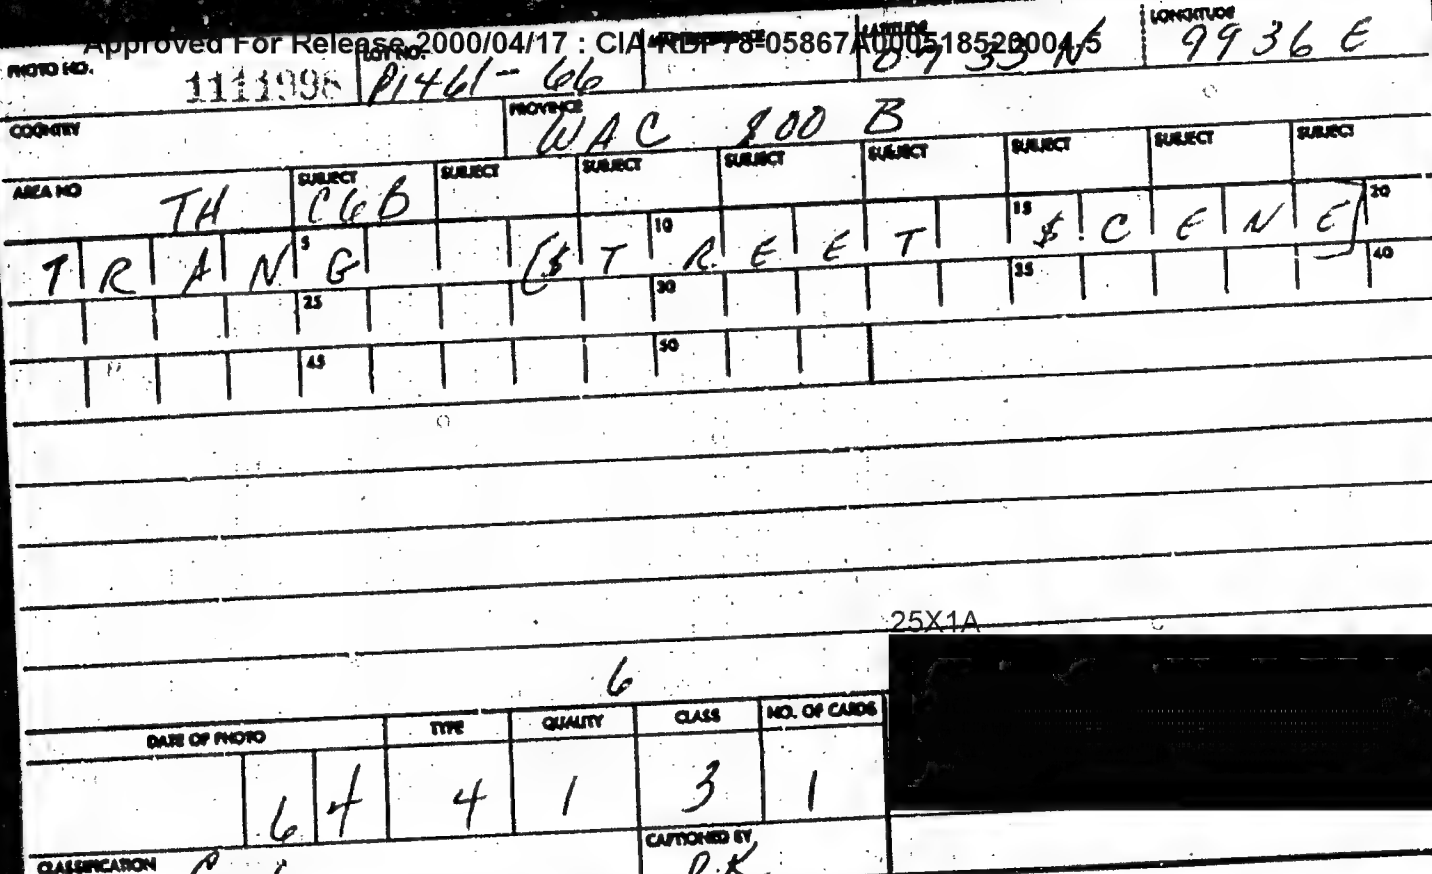 Approved For Release 2000/04/17 : CIA-RDP78-05867A000518520004-5
PHOTO NO. 1111998 LOT NO. P1461-66 LATITUDE 0733 N LONGITUDE 9936 E
COUNTRY PROVINCE WAC 800 B
AREA NO TH SUBJECT CGB SUBJECT SUBJECT SUBJECT SUBJECT SUBJECT SUBJECT SUBJECT
T R A N 5 G [$ T 10 R E E T 15 $ C E N E] 20
25 30 35 40
45 50
25X1A
6
DATE OF PHOTO TYPE QUALITY CLASS NO. OF CARDS
64 4 1 3 1
CLASSIFICATION CAPTIONED BY R.K.